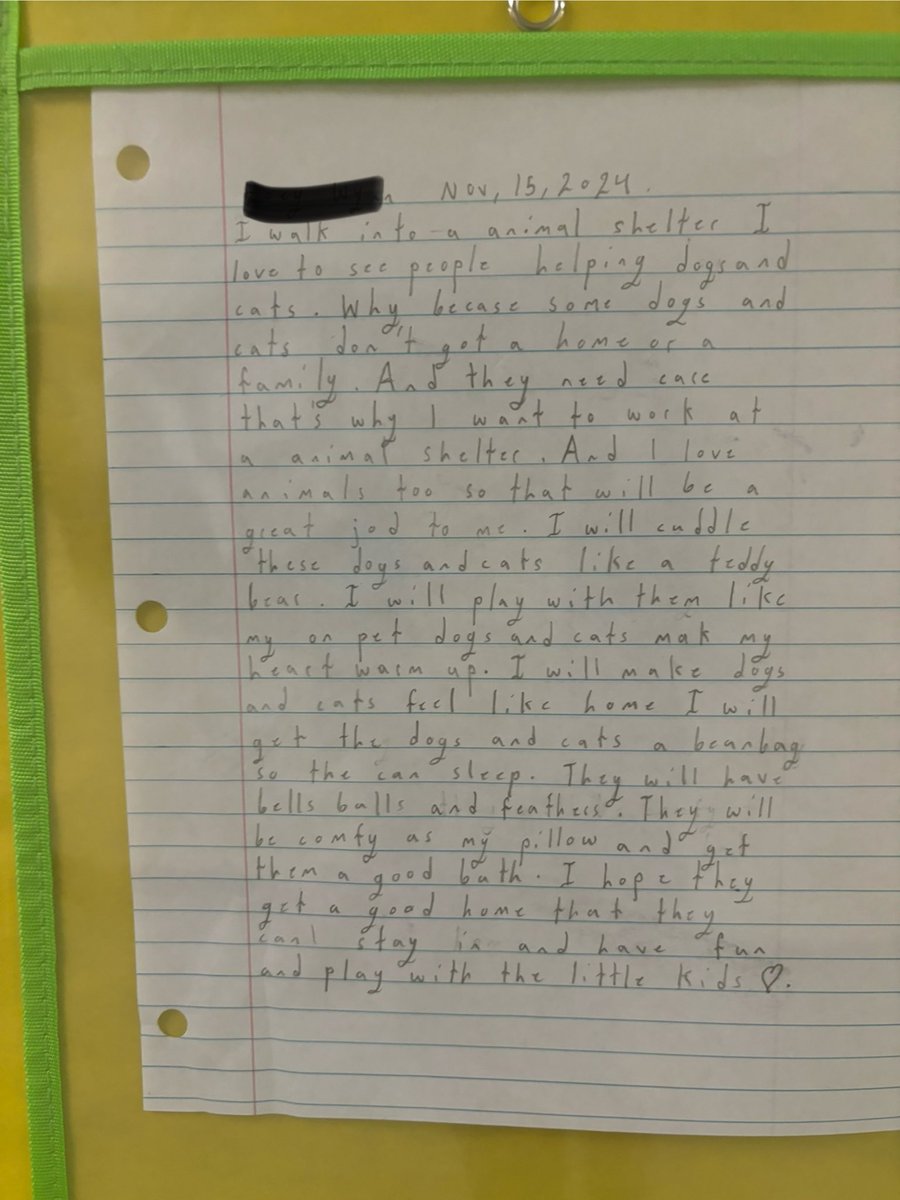 Nov, 15, 2024.
I walk into a animal shelter I
love to see people helping dogs and
cats. Why, becase some dogs and
cats don't got a home or a
family. And they need care
that's why I want to work at
a animal shelter. And I love
animals too so that will be a
great jod to me. I will cuddle
these dogs and cats like a teddy
bear. I will play with them like
my on pet dogs and cats mak my
heart warm up. I will make dogs
and cats feel like home I will
get the dogs and cats a beanbag
so the can sleep. They will have
bells balls and feathers. They will
be comfy as my pillow and get
them a good bath. I hope they
get a good home that they
can stay in and have fun
and play with the little kids ♡.